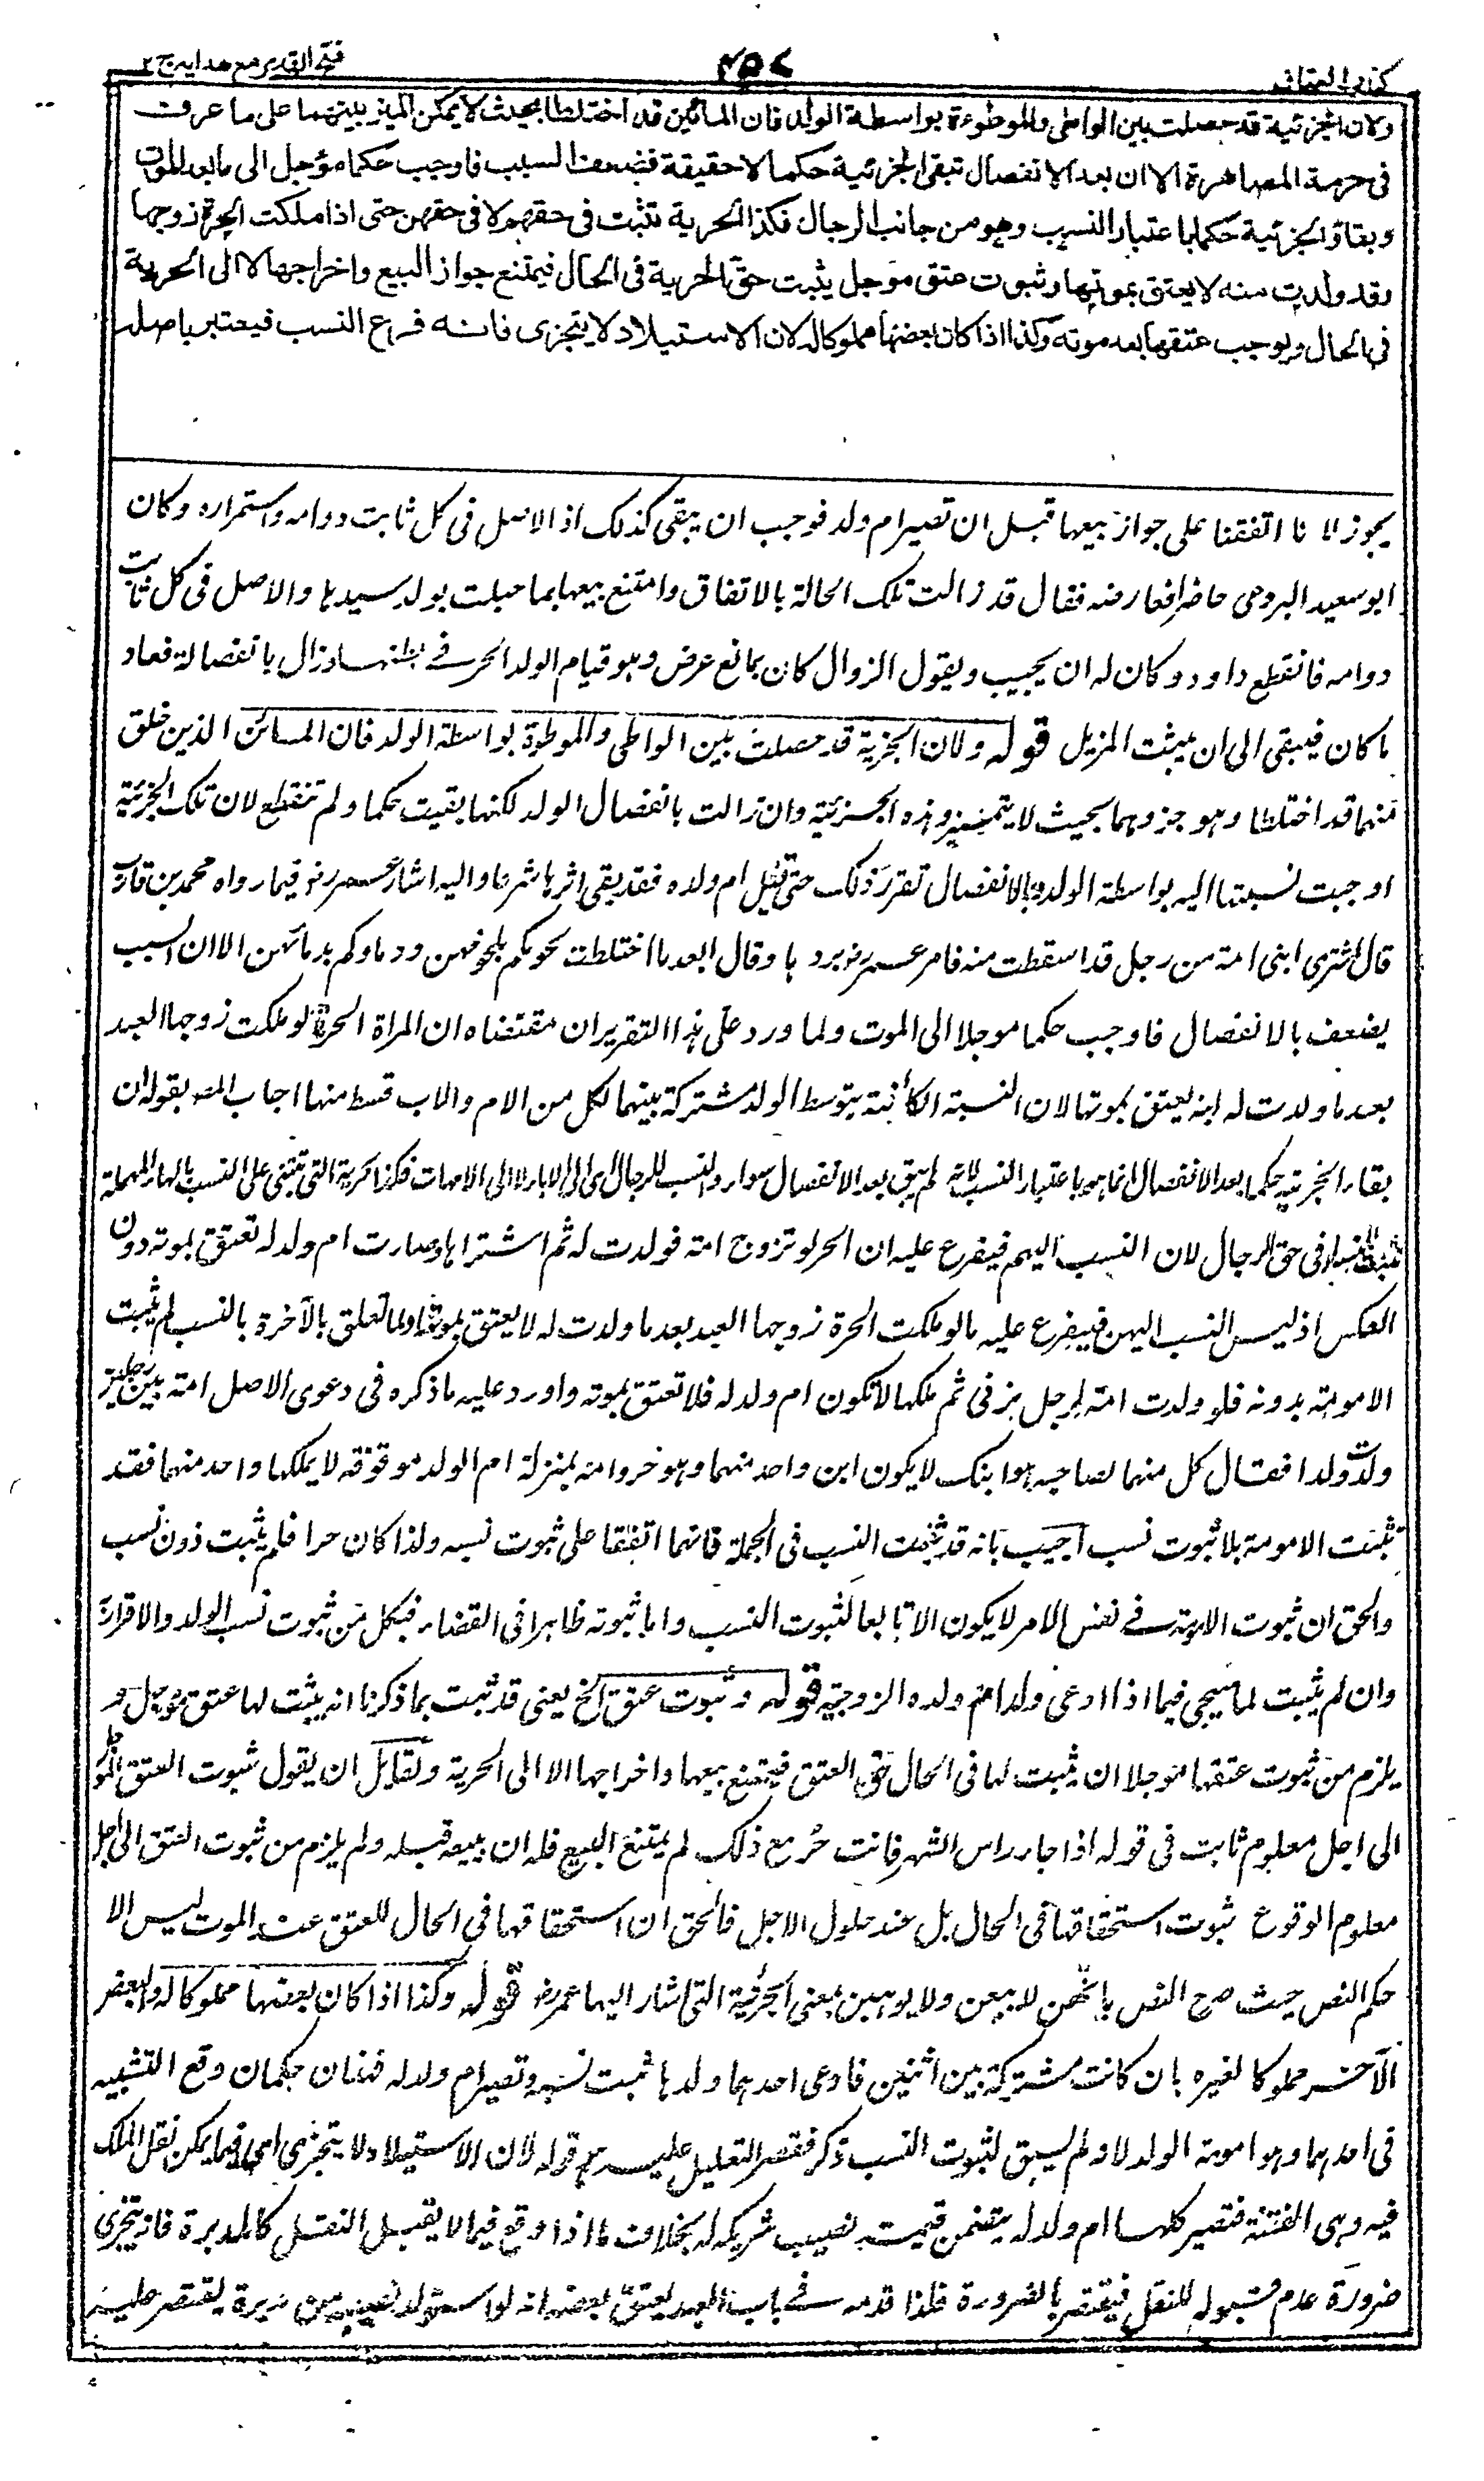 كتاب العتاق
٤٥٧
فتح القدير مع هدايه ج ٢
ولان الجزئية قد حصلت بين الواطى والموطوءة بواسطة الولد فان المائين قد اختلطا بحيث لا يمكن الميز بينهما على ما عرفت
فى حرمة المصاهرة الا ان بعد الانفصال تبقى الجزئية حكما لا حقيقة فضعف السبب فاوجب حكما مؤجل الى ما بعد الموت
وبقاؤ الجزئية حكما باعتبار النسب وهو من جانب الرجال فكذا الحرية تثبت فى حقهم لا فى حقهن حتى اذا ملكت الحرة زوجها
وقد ولدت منه لا يعتق بموتها وثبوت عتق مؤجل يثبت حق الحرية فى الحال فيمتنع جواز البيع واخراجها لا الى الحرية
فى الحال ويوجب عتقها بعد موته وكذا اذا كان بعضها مملوكا له لان الاستيلاد لا يتجزى فانه فرع النسب فيعتبر باصله
يجوز لانا اتفقنا على جواز بيعها قبل ان تصير ام ولد فوجب ان يبقى كذلك اذ الاصل فى كل ثابت دوامه واستمراره وكان
ابو سعيد البردعى حاضرا فعارضه فقال قد زالت تلك الحالة بالاتفاق وامتنع بيعها بما حبلت بولد سيدها والاصل فى كل ثابت
دوامه فانقطع داود وكان له ان يجيب ويقول الزوال كان بمانع عرض وهو قيام الولد الحر فى بطنها وزال بانفصاله فعاد
ما كان فيبقى الى ان يثبت المزيل قوله ولان الجزية قد حصلت بين الواطى والموطوة بواسطة الولد فان المائن الذين خلق
منهما قد اختلطا وهو جزوهما بحيث لا يتميز وهذه الجزئية وان زالت بانفصال الولد لكنها بقيت حكما ولم تنقطع لان تلك الجزئية
اوجبت نسبتها اليه بواسطة الولد وبالانفصال تقرر ذلك حتى قيل ام ولده فقد بقى اثرها شرعا واليه اشار عمر رضـ فيما رواه محمد بن قارب
قال اشترى ابى امة من رجل قد اسقطت منه فامر عمر رضـ بردها وقال ابعد ما اختلطت لحومكم بلحومهن ودماوكم بدمائهن الا ان السبب
يضعف بالانفصال فاوجب حكما موجلا الى الموت ولما ورد على هذا التقرير ان مقتضاه ان المراة الحرة لو ملكت زوجها العبد
بعد ما ولدت له انه يعتق بموتها لان النسبة الكائنة بتوسط الولد مشتركة بينهما لكل من الام والاب قسط منها اجاب المصـ بقوله ان
بقاء الجزئية حكما بعد الانفصال انما هو باعتبار النسب لانه لم يبق بعد الانفصال سواه والنسب للرجال اى الى الاباء لا الى الامهات فكذا الحرية التى تبتنى على النسب بالهاء المهملة
فى حق الرجال لان النسب اليهم فيفرع عليه ان الحر لو تزوج امة فولدت له ثم اشتراها وصارت ام ولد له تعتق بموته دون
العكس اذ ليس النسب اليهن فيتفرع عليه ما لو ملكت الحرة زوجها العبد بعد ما ولدت له لا يعتق بموتها ولما تعلق بالآخرة بالنسب لم يثبت
الامومة بدونه فلو ولدت امة لرجل بزنى ثم ملكها لا تكون ام ولد له فلا تعتق بموته واورد عليه ما ذكره فى دعوى الاصل امة بين رجلين
ولدت ولدا فقال كل منهما لصاحبه هو ابنك لا يكون ابن واحد منهما وهو حر وامه بمنزلة ام الولد موقوفة لا يملكها واحد منهما فقد
ثبتت الامومة بلا ثبوت نسب اجيب بانه قد ثبت النسب فى الجملة فانهما اتفقا على ثبوت نسبه ولذا كان حرا فلم يثبت دون نسب
والحق ان ثبوت الامية فى نفس الامر لا يكون الا تابعا لثبوت النسب واما ثبوته ظاهرا فى القضاء فبكل من ثبوت نسب الولد والاقرار
وان لم يثبت لما سيجى فيما اذا ادعى ولد امة ولده الزوجية قوله وثبوت عتق الخ يعنى قد ثبت بما ذكرنا انه يثبت لها عتق موجل و
يلزم من ثبوت عتقها موجلا ان يثبت لها فى الحال حق العتق فيمتنع بيعها واخراجها الا الى الحرية ولقائل ان يقول ثبوت العتق
الى اجل معلوم ثابت فى قوله اذا جاء راس الشهر فانت حر مع ذلك لم يمتنع البيع فله ان يبيعه قبله ولم يلزم من ثبوت العتق الى اجل
معلوم الوقوع ثبوت استحقاقها فى الحال بل عند حلول الاجل فالحق ان استحقاقها فى الحال للعتق عند الموت ليس الا
حكم النص حيث صرح النص بانهن لا يبعن ولا يوهبن بمعنى الجزئية التى اشار اليها عمر رضـ قوله وكذا اذا كان بعضها مملوكا له والبعض
الآخر مملوكا لغيره بان كانت مشتركة بين اثنين فادعى احدهما ولدها ثبت نسبه وتصير ام ولد له فهذان حكمان وقع التشبيه
فى احدهما وهو امومة الولد لانه لم يسبق لثبوت النسب ذكر فقصر التعليل عليه وهو قوله لان الاستيلاد لا يتجزى اى فيما يمكن نقل الملك
فيه وهى القنة فتصير كلها ام ولد له يتضمن قيمة نصيب شريكه له بخلاف ما اذا وقع فيما لا يقبل النقل كالمدبرة فانه يتجزى
ضرورة عدم قبوله للنقل فيقتصر بالضرورة فلذا قدمه فى باب العبد يعتق بعضه انه لو استولد نصيبه من مدبرة يقتصر عليه